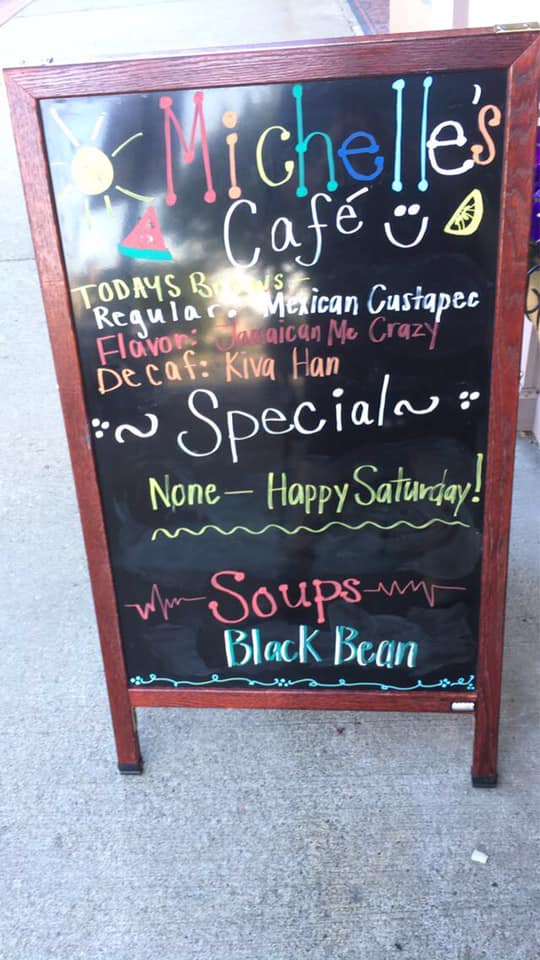 Michelle's
Café
TODAYS Brews -
Regular: Mexican Custapec
Flavor: Jamaican Me Crazy
Decaf: Kiva Han
~ Special ~
None - Happy Saturday!
Soups
Black Bean